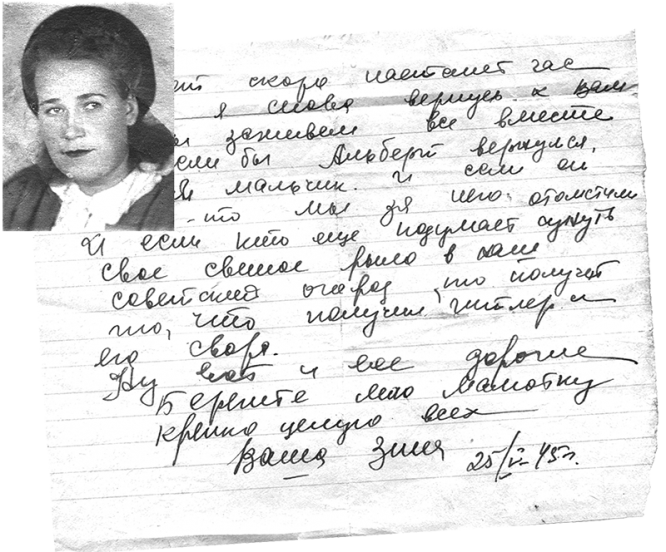 скоро настанет час
я снова вернусь к вам
заживем все вместе
если бы Альберт вернулся,
мальчик. и если он
что мы за него отомстили
И если кто еще подумает сунуть
свое свиное рыло в наш
советский огород, то получит
то, что получил гитлер и
его свора.
Ну вот и все дорогие
Берегите мою мамочку
крепко целую всех
Ваша Зина 25/V-45г.